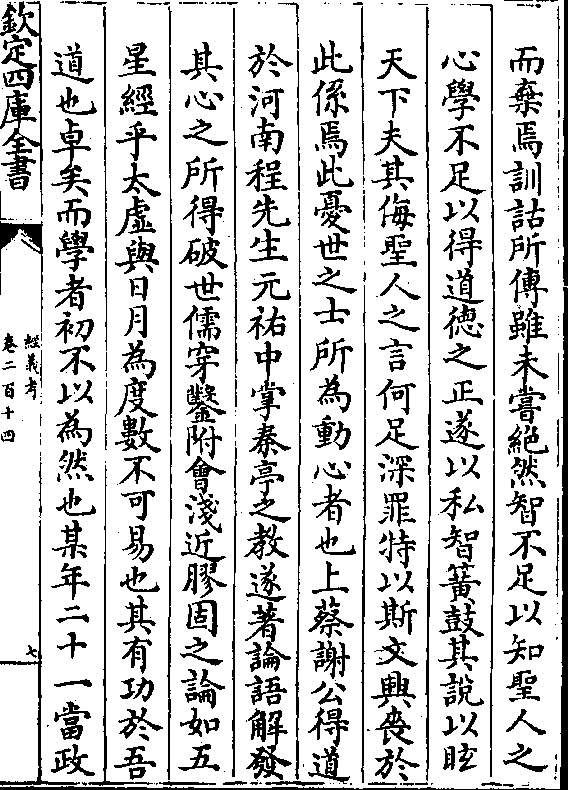 而棄焉訓詁所傳雖未嘗絶然智不足以知聖人之
心學不足以得道德之正遂以私智簧鼓其說以眩
天下夫其侮聖人之言何足深罪特以斯文興喪於
此係焉此憂世之士所為動心者也上蔡謝公得道
於河南程先生元祐中掌秦亭之教遂著論語解發
其心之所得破世儒穿鑿附會淺近膠固之論如五
星經乎太虛與日月為度數不可易也其有功於吾
道也卓矣而學者初不以為然也某年二十一當政
欽定四庫全書
經義考
卷二百十四
七